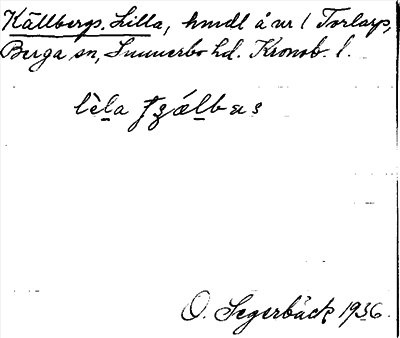 Källbergs, Lilla, hmdl å nr 1 Torlarp,
Berga sn, Sunnerbo hd. Kronob. l.
lèla
O. Segerbäck 1936.